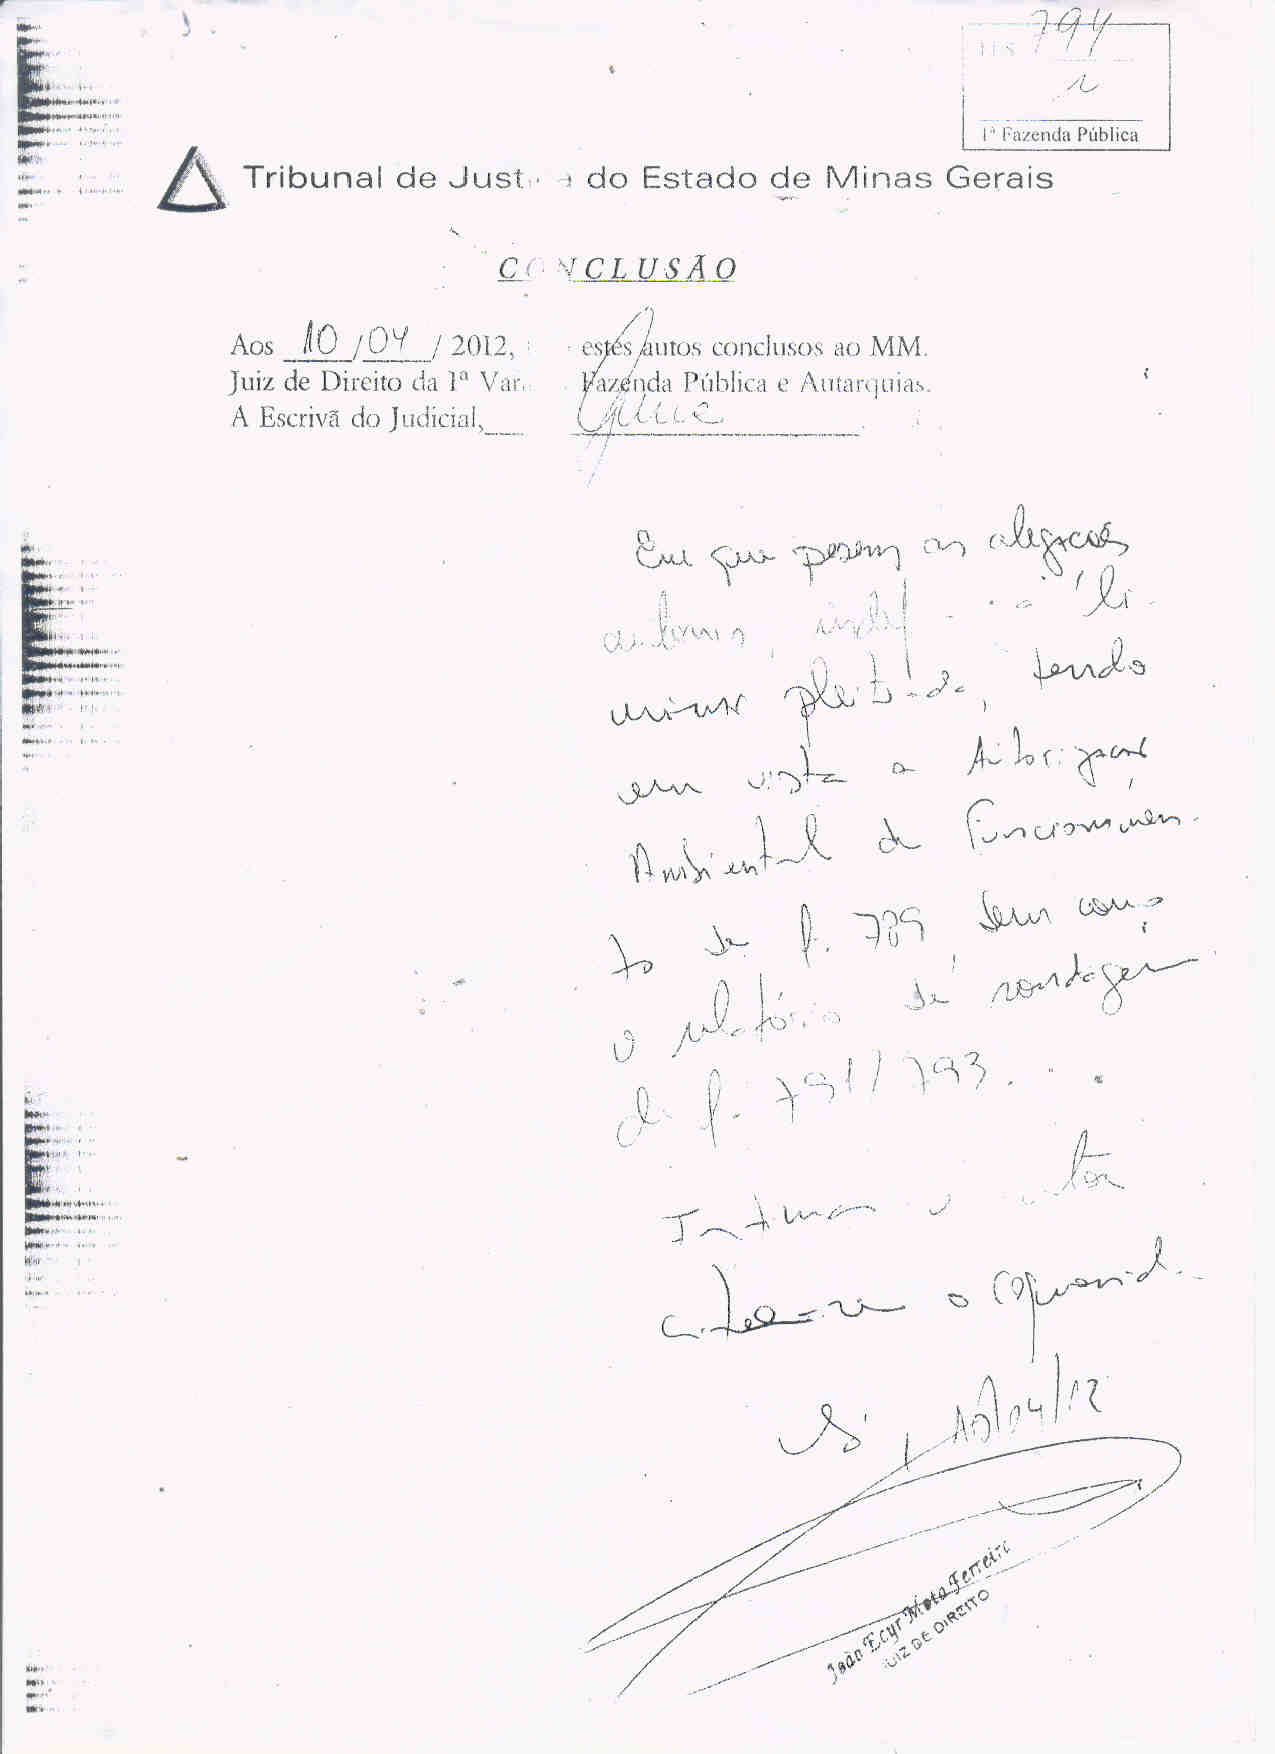 FLS 794
1ª Fazenda Pública
Tribunal de Just a do Estado de Minas Gerais
CONCLUSÃO
Aos 10/04/2012, estes autos conclusos ao MM.
Juiz de Direito da 1ª Vara Fazenda Pública e Autarquias.
A Escrivã do Judicial,
Em que pesem as alegações
autorais, a li-
minar pleiteada, tendo
em vista a Autorização
Ambiental de Funcionamen-
to de f. 789, bem como
o relatório de sondagem
de f. 791/793.
Intimar o autor
Cite-se o requerid.
10/04/12
João Ecyr Mota Ferreira
JUIZ DE DIREITO